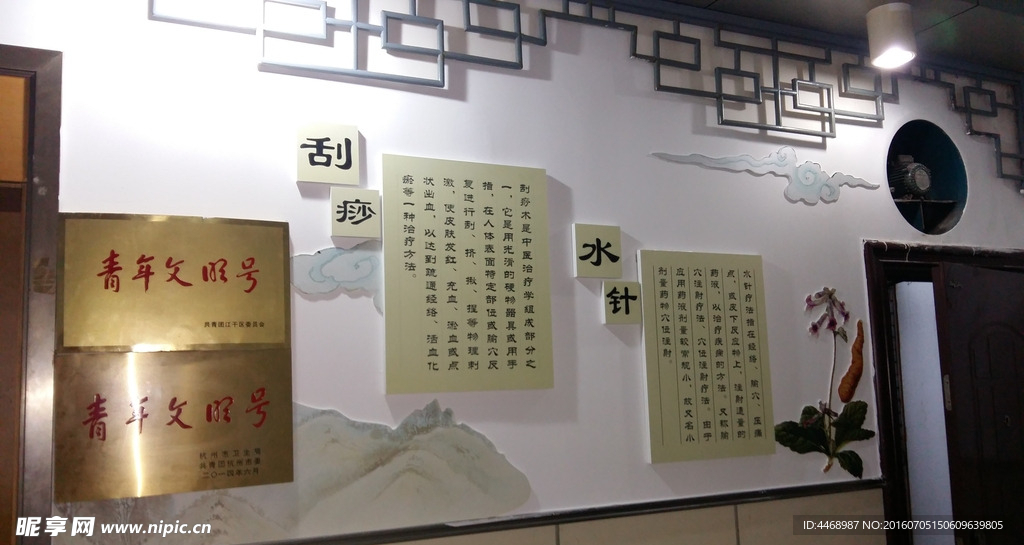 青年文明号
共青团江干区委员会
青年文明号
杭州市卫生局
共青团杭州市委
二〇一四年六月
刮
痧
刮痧术是中医治疗学组成部分之
一，它是用光滑的硬物器具或用手
指，在人体表面特定部位或腧穴反
复进行刮、挤、揪、捏等物理刺
激，使皮肤发红、充血、淤血或点
状出血，以达到疏通经络、活血化
瘀等一种治疗方法。
水
针
水针疗法指在经络、腧穴、压痛
点，或皮下反应物上，注射适量的
药液，以治疗疾病的方法。又称腧
穴注射疗法、穴位注射疗法。由于
应用药液剂量较常规小，故又名小
剂量药物穴位注射。
昵享网 www.nipic.cn
ID:4468987 NO:20160705150609639805